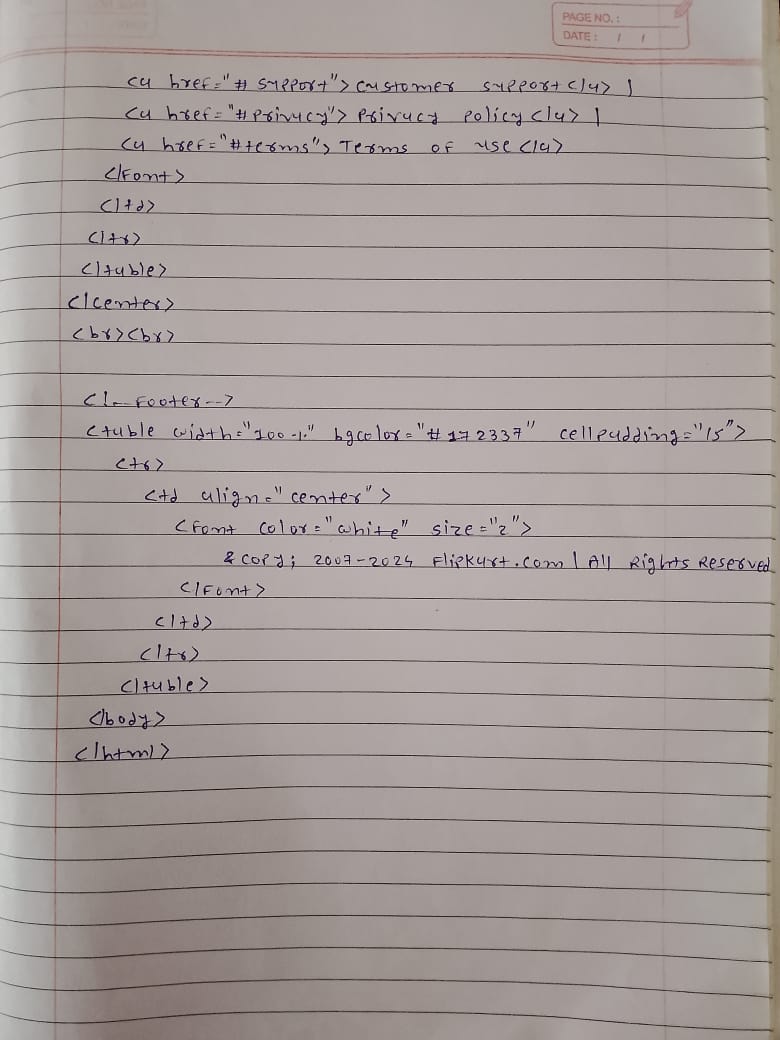 PAGE NO. :
DATE : / /
<a href="# support"> customer support </a> |
<a href="#privacy"> Privacy policy </a> |
<a href="#terms"> Terms of use </a>
</font>
</td>
</tr>
</table>
</center>
<br><br>
<!-- Footer -->
<table width="100%" bgcolor="#172337" cellpadding="15">
<tr>
<td align="center">
<font color="white" size="2">
&copy; 2007-2024 Flipkart.com | All Rights Reserved
</font>
</td>
</tr>
</table>
</body>
</html>